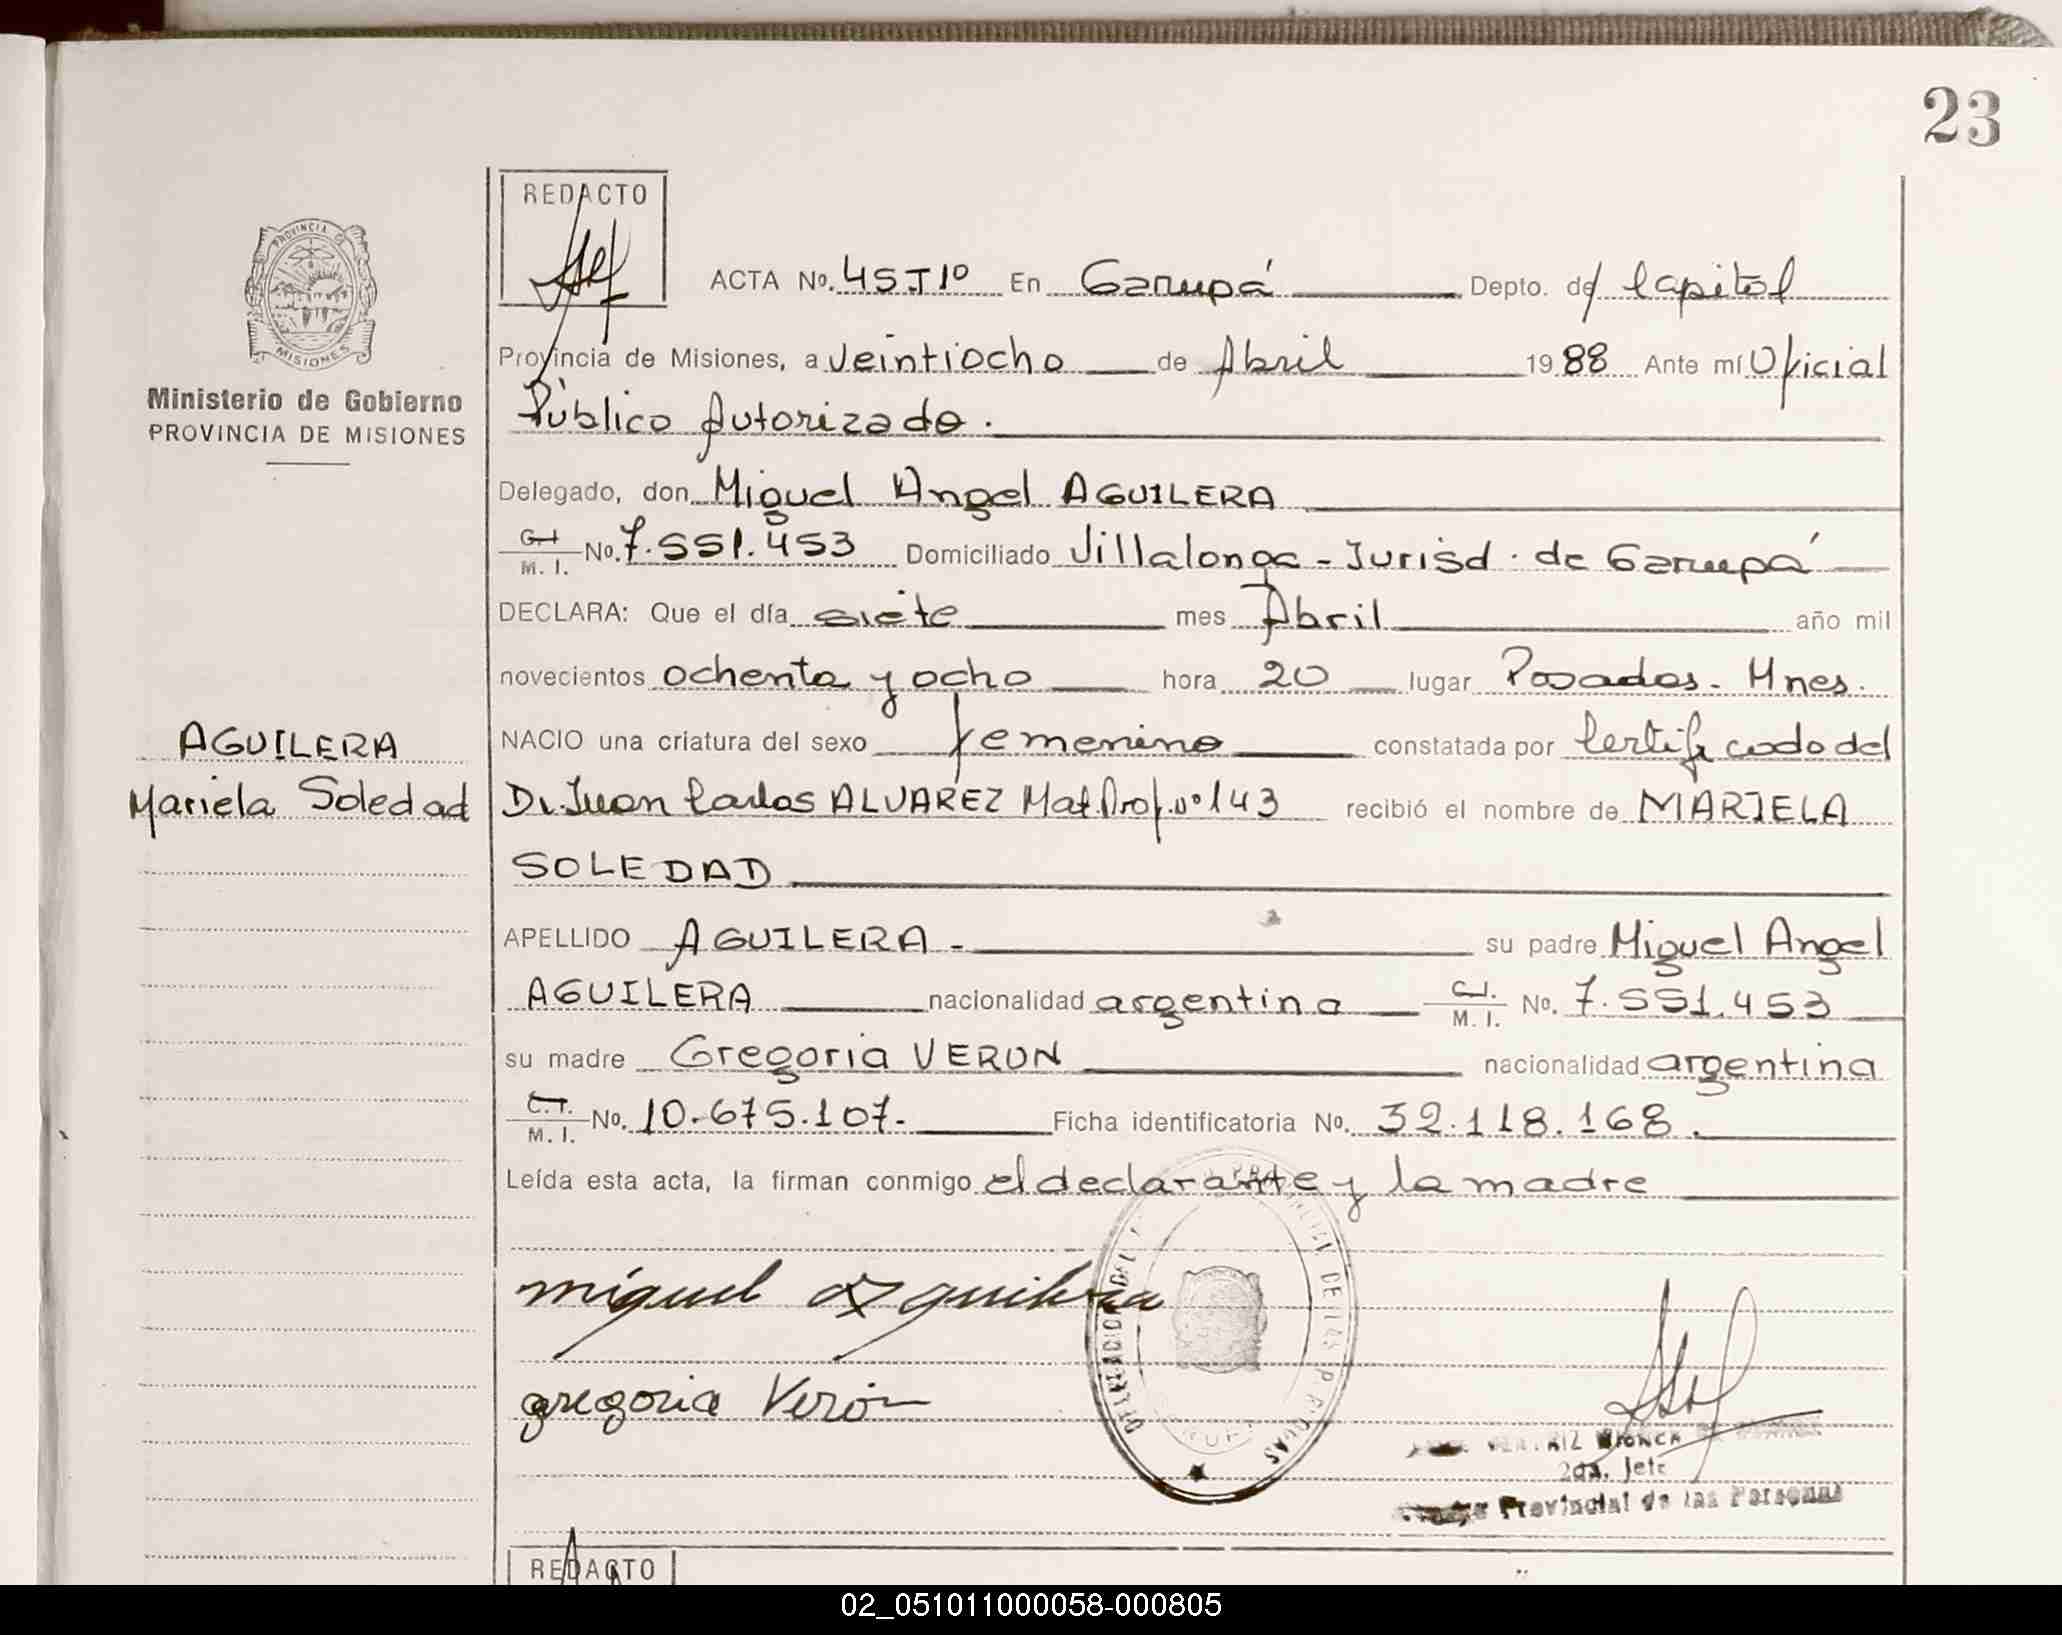 23
REDACTO
PROVINCIA DE
MISIONES
Ministerio de Gobierno
PROVINCIA DE MISIONES
ACTA No. 45 T1º En Garupá Depto. de Capital
Provincia de Misiones, a Veintiocho de Abril 1988 Ante mí Oficial
Público Autorizado.
Delegado, don Miguel Angel AGUILERA
C.I. M. I. No. 7.551.453 Domiciliado Villalonga - Jurisd. de Garupá
DECLARA: Que el día siete mes Abril año mil
novecientos ochenta y ocho hora 20 lugar Posadas. Mnes.
NACIO una criatura del sexo femenino constatada por Certificado del
AGUILERA
Mariela Soledad
Dr. Juan Carlos ALVAREZ Mat. Prof. nº 143 recibió el nombre de MARIELA
SOLEDAD
APELLIDO AGUILERA - su padre Miguel Angel
AGUILERA nacionalidad argentina C.I. M. I. No. 7.551.453
su madre Gregoria VERON nacionalidad argentina
C.I. M. I. No. 10.675.107. Ficha identificatoria No. 32.118.168.
Leída esta acta, la firman conmigo el declarante y la madre
miguel a aguilera
gregoria Verón
2da. Jefe
Provincial de las Personas
REDACTO
02_051011000058-000805